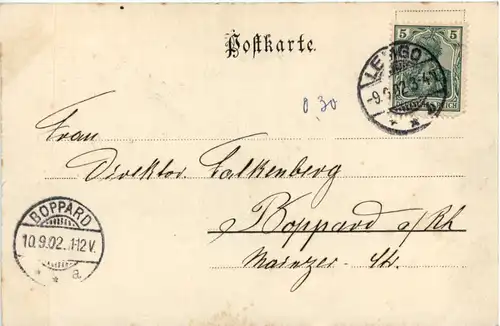 Postkarte.
5 5
LEMGO
-9.9.02. 3-4 N.
REICH
0 30
Frau
Direktor Falkenberg
Boppard a/Rh
Mainzer Str.
BOPPARD
10.9.02. 1-12 V.
a